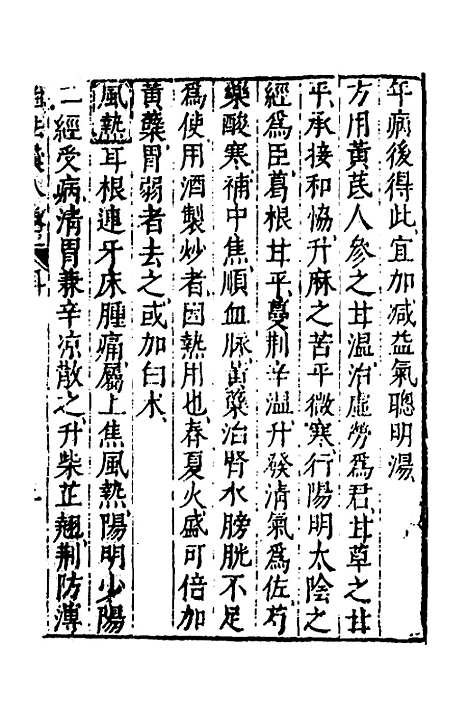 年病後得此宜加减益氣聰明湯
方用黃芪人參之甘温治虛勞爲君甘草之甘
平承接和恊升麻之苦平微寒行陽明太陰之
經爲臣葛根甘平蔓荆辛温升發淸氣爲佐芍
藥酸寒補中焦順血脉黃蘗治腎水膀胱不足
爲使用酒製炒者因熱用也春夏火盛可倍加
黃蘗胃弱者去之或加白朮
風熱耳根連牙床腫痛屬上焦風熱陽明少陽
二經受病淸胃兼辛凉散之升柴芷翹荆防薄